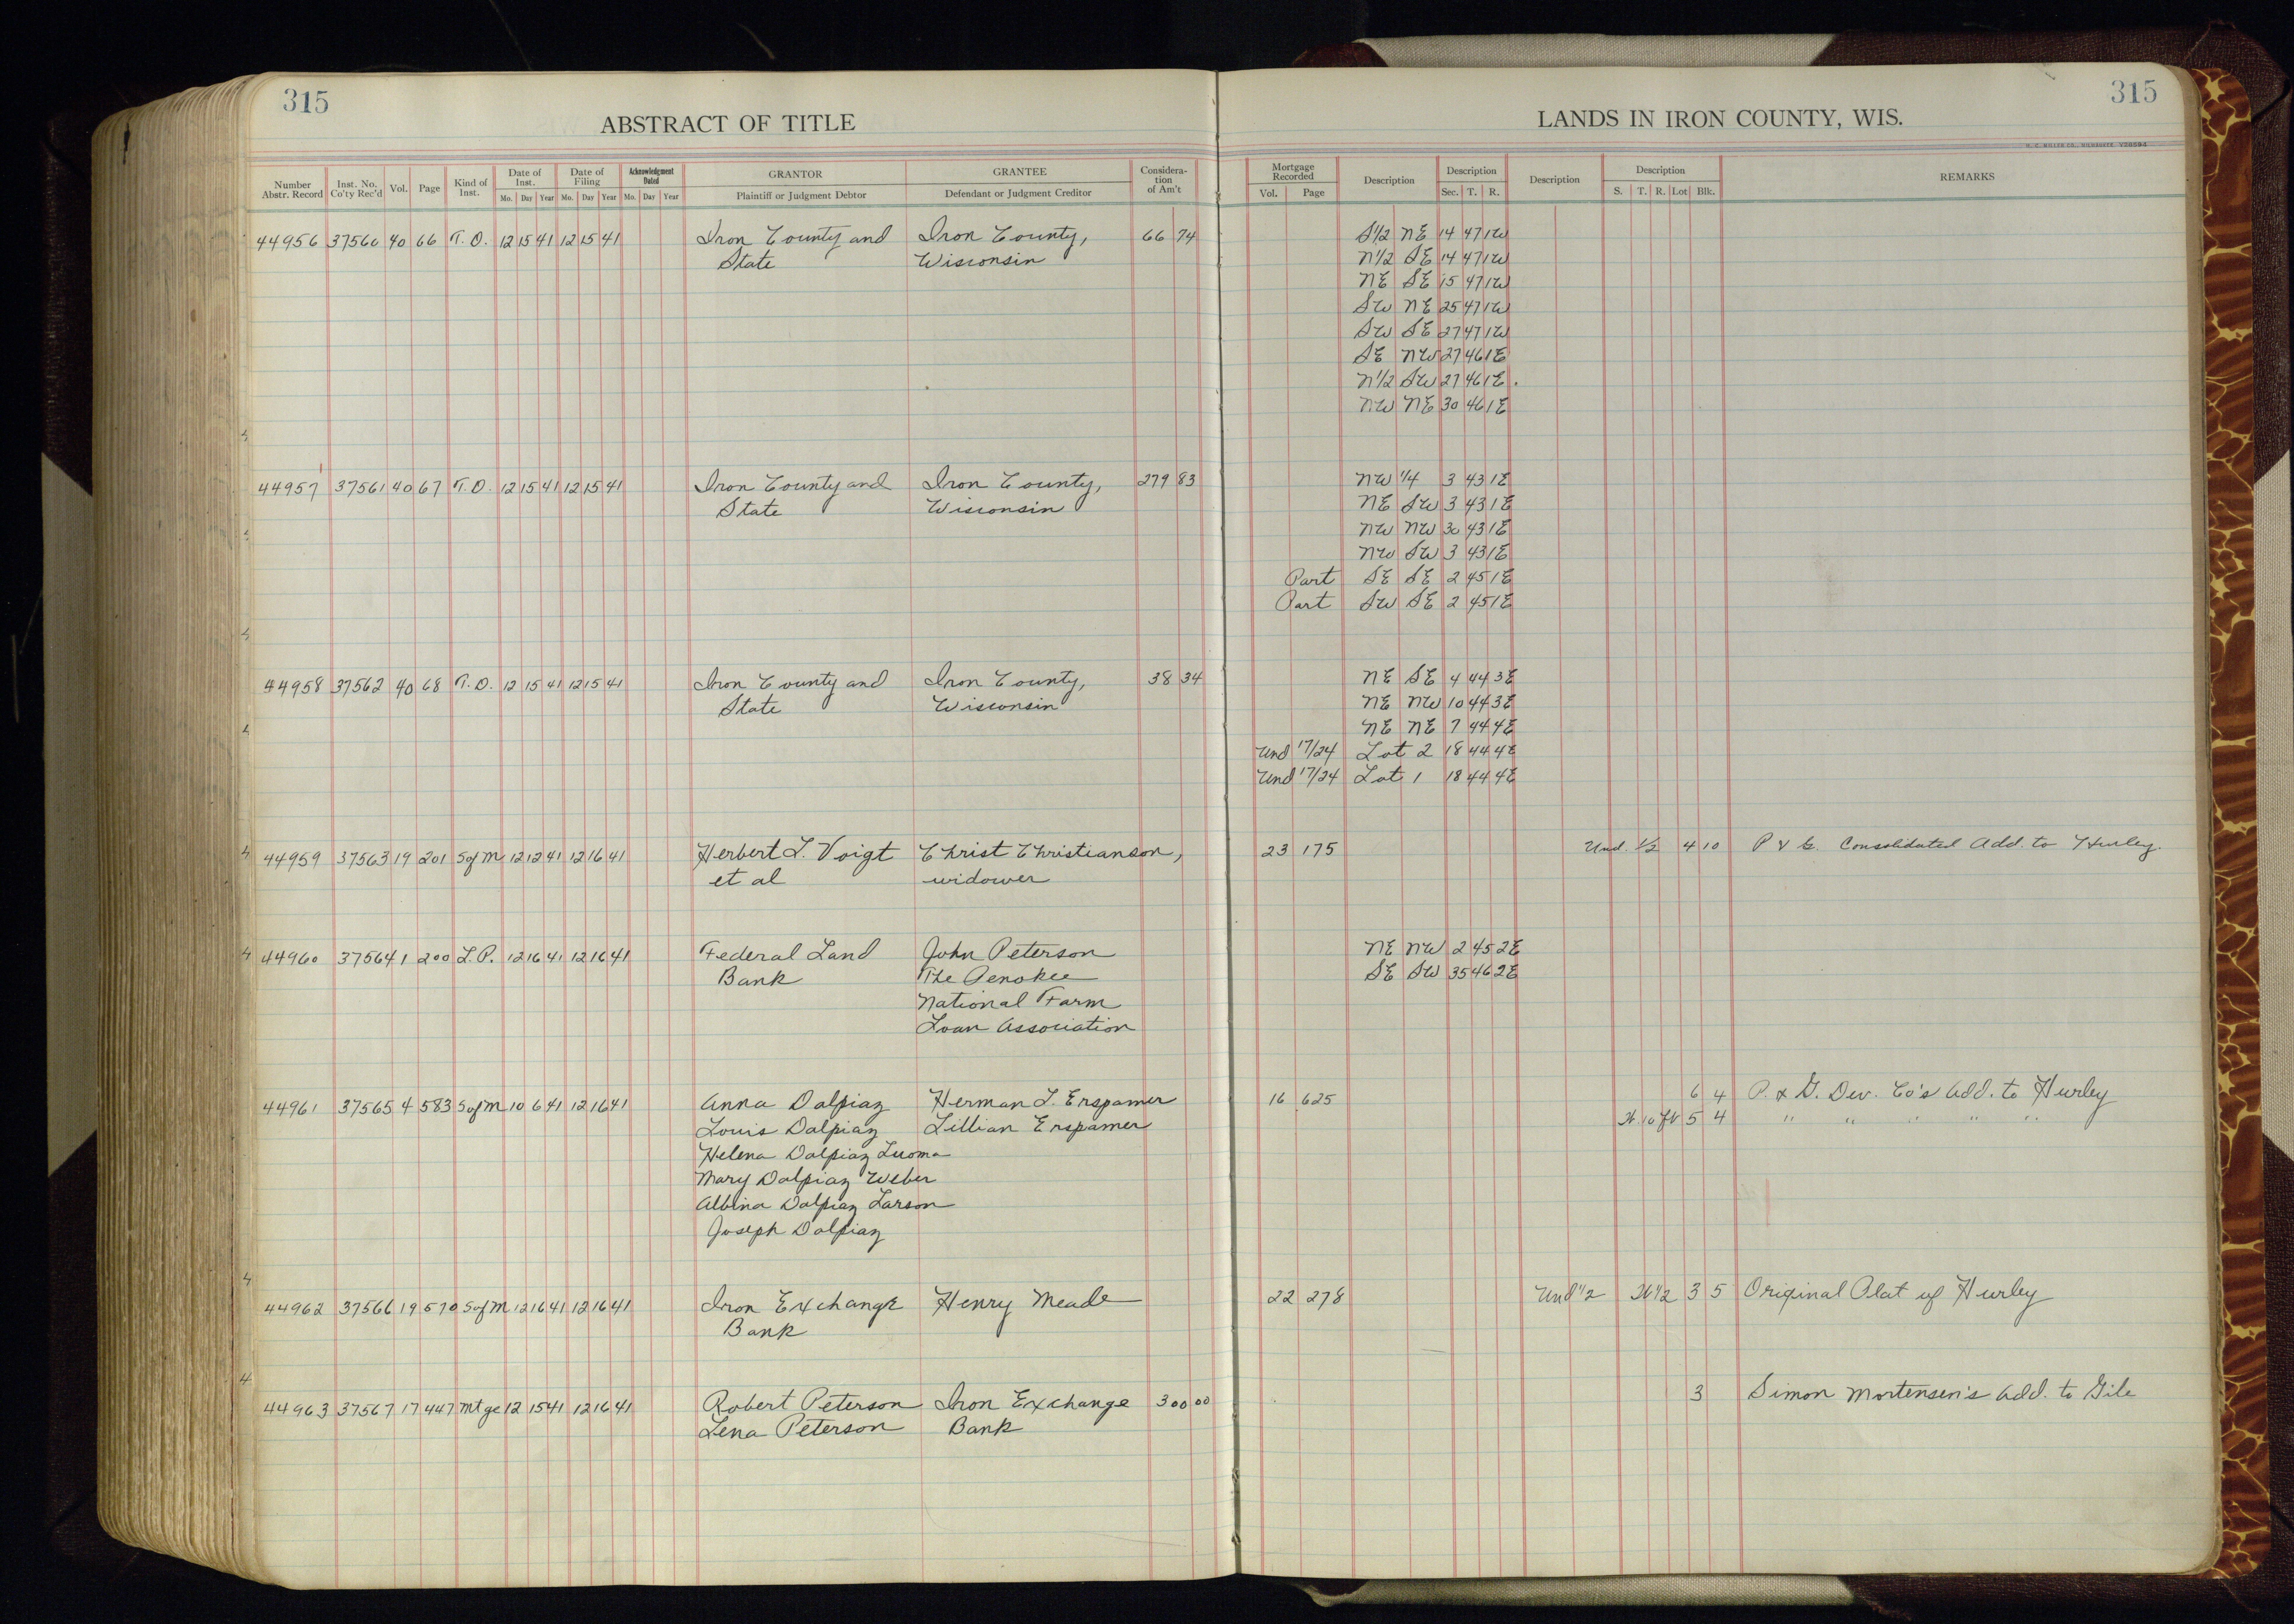 315
315
ABSTRACT OF TITLE
LANDS IN IRON COUNTY, WIS.
Number Abstr. Record
Inst. No. Co'ty Rec'd
Vol.
Page
Kind of Inst.
Date of Inst.
Mo. Day Year
Date of Filing
Mo. Day Year
Acknowledgment Dated
Mo. Day Year
GRANTOR
Plaintiff or Judgment Debtor
GRANTEE
Defendant or Judgment Creditor
Considera-tion of Am't
Mortgage Recorded
Vol. Page
Description
Description
Sec. T. R.
Description
Description
S. T. R. Lot Blk.
REMARKS
44956 37560 40 66 T. D. 12 15 41 12 15 41 Iron County and Iron County, 66 74 S1/2 NE 14 47 1W
State Wisconsin N1/2 SE 14 47 1W
NE SE 15 47 1W
SW NE 25 47 1W
SW SE 27 47 1W
SE NW 27 46 1E
N1/2 SW 27 46 1E
NW NE 30 46 1E
44957 37561 40 67 T. D. 12 15 41 12 15 41 Iron County and Iron County, 279 83 NW 1/4 3 43 1E
State Wisconsin NE SW 3 43 1E
NW NW 30 43 1E
NW SW 3 43 1E
Part SE SE 2 45 1E
Part SW SE 2 45 1E
44958 37562 40 68 T. D. 12 15 41 12 15 41 Iron County and Iron County, 38 34 NE SE 4 44 3E
State Wisconsin NE NW 10 44 3E
NE NE 7 44 4E
Und 17/24 Lot 2 18 44 4E
Und 17/24 Lot 1 18 44 4E
44959 37563 19 201 S of M 12 12 41 12 16 41 Herbert L. Voigt Christ Christianson, 23 175 Und. 1/2 4 10 P & G. Consolidated Add. to Hurley.
et al widower
44960 37564 1 200 L. P. 12 16 41 12 16 41 Federal Land John Peterson NE NW 2 45 2E
Bank The Penokee SE SW 35 46 2E
National Farm
Loan Association
44961 37565 4 583 S of M 10 6 41 12 16 41 Anna Dalpiaz Herman L. Erspamer 16 625 6 4 P. & G. Dev. Co's Add. to Hurley
Louis Dalpiaz Lillian Erspamer N. 10 ft 5 4 " " " " "
Helena Dalpiaz Luoma
Mary Dalpiaz Weber
Albina Dalpiaz Larson
Joseph Dalpiaz
44962 37566 19 570 S of M 12 16 41 12 16 41 Iron Exchange Henry Meade 22 278 Und 1/2 N1/2 3 5 Original Plat of Hurley
Bank
44963 37567 17 447 Mtge 12 15 41 12 16 41 Robert Peterson Iron Exchange 300 00 3 Simon Mortensen's Add. to Gile
Lena Peterson Bank